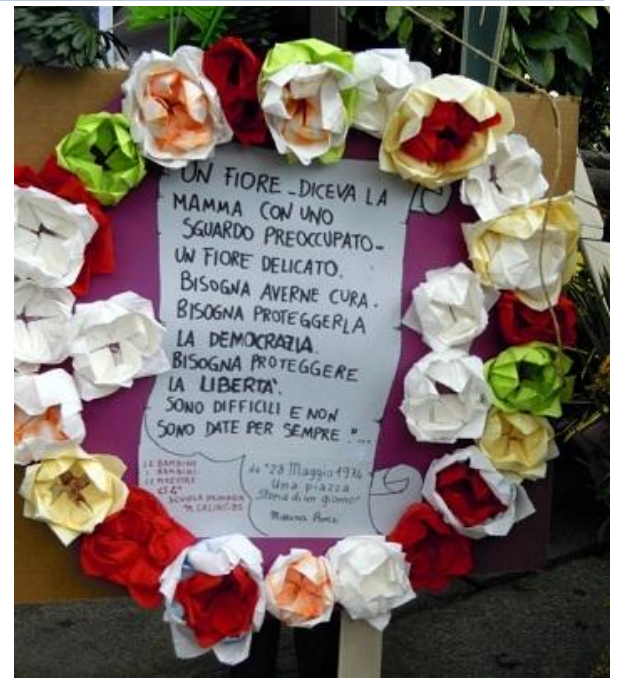 UN FIORE - DICEVA LA
MAMMA CON UNO
SGUARDO PREOCCUPATO -
UN FIORE DELICATO.
BISOGNA AVERNE CURA.
BISOGNA PROTEGGERLA
LA DEMOCRAZIA.
BISOGNA PROTEGGERE
LA LIBERTA'.
SONO DIFFICILI E NON
SONO DATE PER SEMPRE "...
LE BAMBINE
I BAMBINI
LE MAESTRE
SCUOLA PRIMARIA
da "28 Maggio 1974
Una piazza
Storia di un giorno"